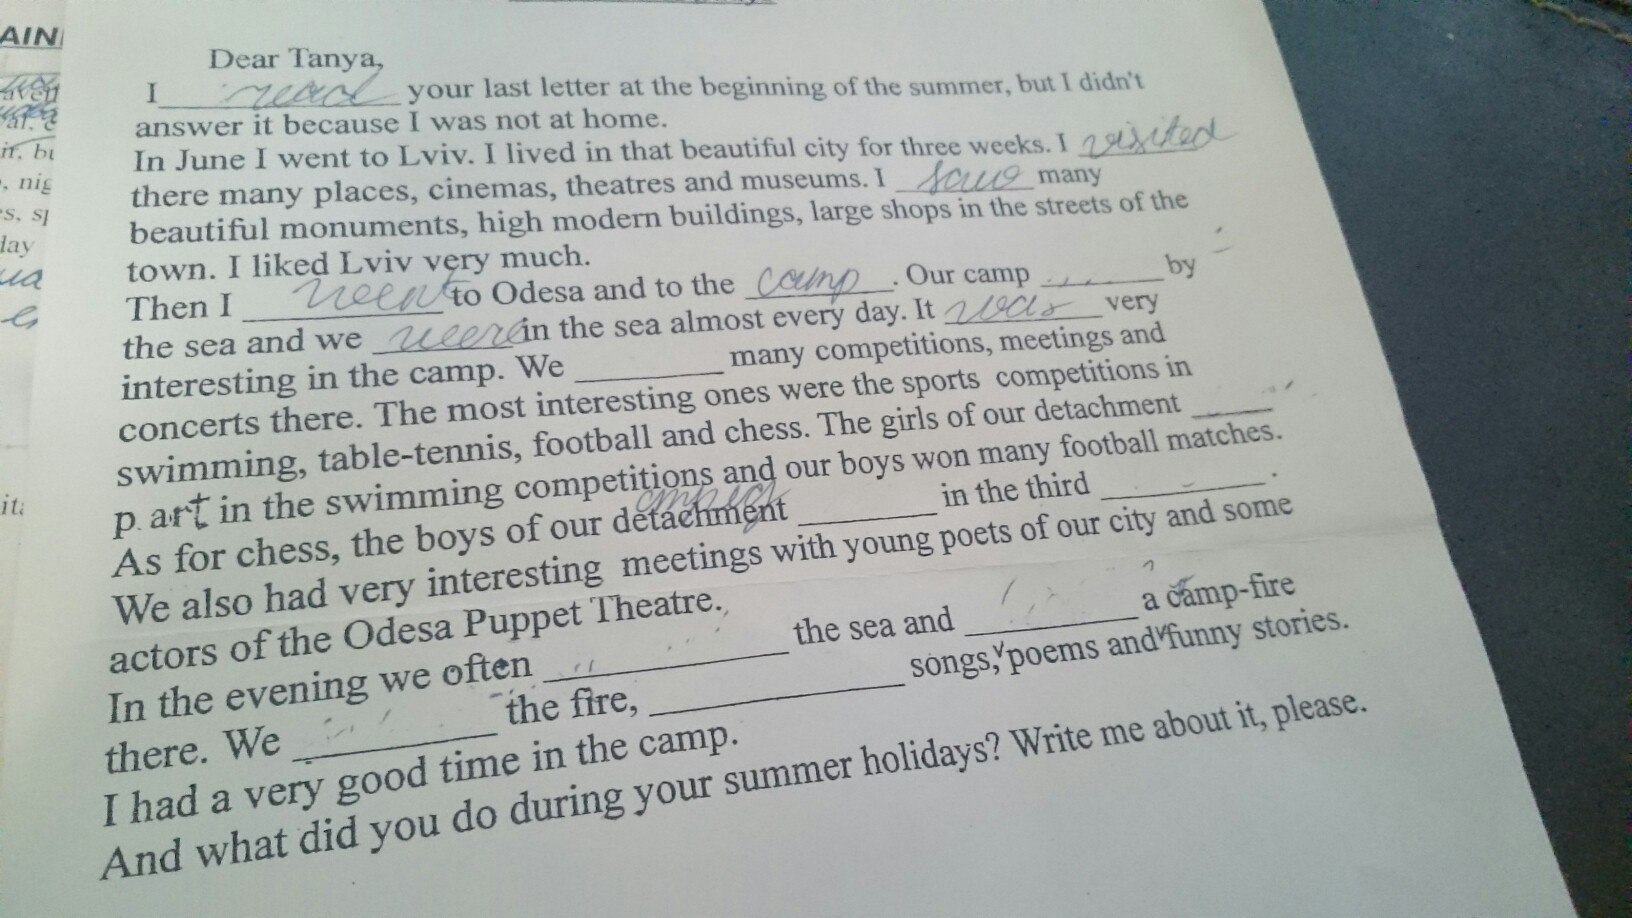 AIN
Dear Tanya,
I read your last letter at the beginning of the summer, but I didn't
answer it because I was not at home.
In June I went to Lviv. I lived in that beautiful city for three weeks. I visited
there many places, cinemas, theatres and museums. I saw many
beautiful monuments, high modern buildings, large shops in the streets of the
town. I liked Lviv very much.
Then I went to Odesa and to the camp. Our camp ______ by
the sea and we were in the sea almost every day. It was very
interesting in the camp. We ______ many competitions, meetings and
concerts there. The most interesting ones were the sports competitions in
swimming, table-tennis, football and chess. The girls of our detachment ______
part in the swimming competitions and our boys won many football matches.
As for chess, the boys of our detachment ______ in the third ______.
We also had very interesting meetings with young poets of our city and some
actors of the Odesa Puppet Theatre.
In the evening we often ______ the sea and ______ a camp-fire
there. We ______ the fire, ______ songs, poems and funny stories.
I had a very good time in the camp.
And what did you do during your summer holidays? Write me about it, please.